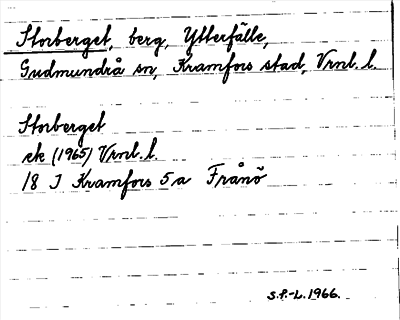 Storberget, berg, Ytterfälle,
Gudmundrå sn, Kramfors stad, Vrnl. l.
Storberget
ek (1965) Vrnl. l.
18 J Kramfors 5 a Frånö
S.P.-L. 1966.